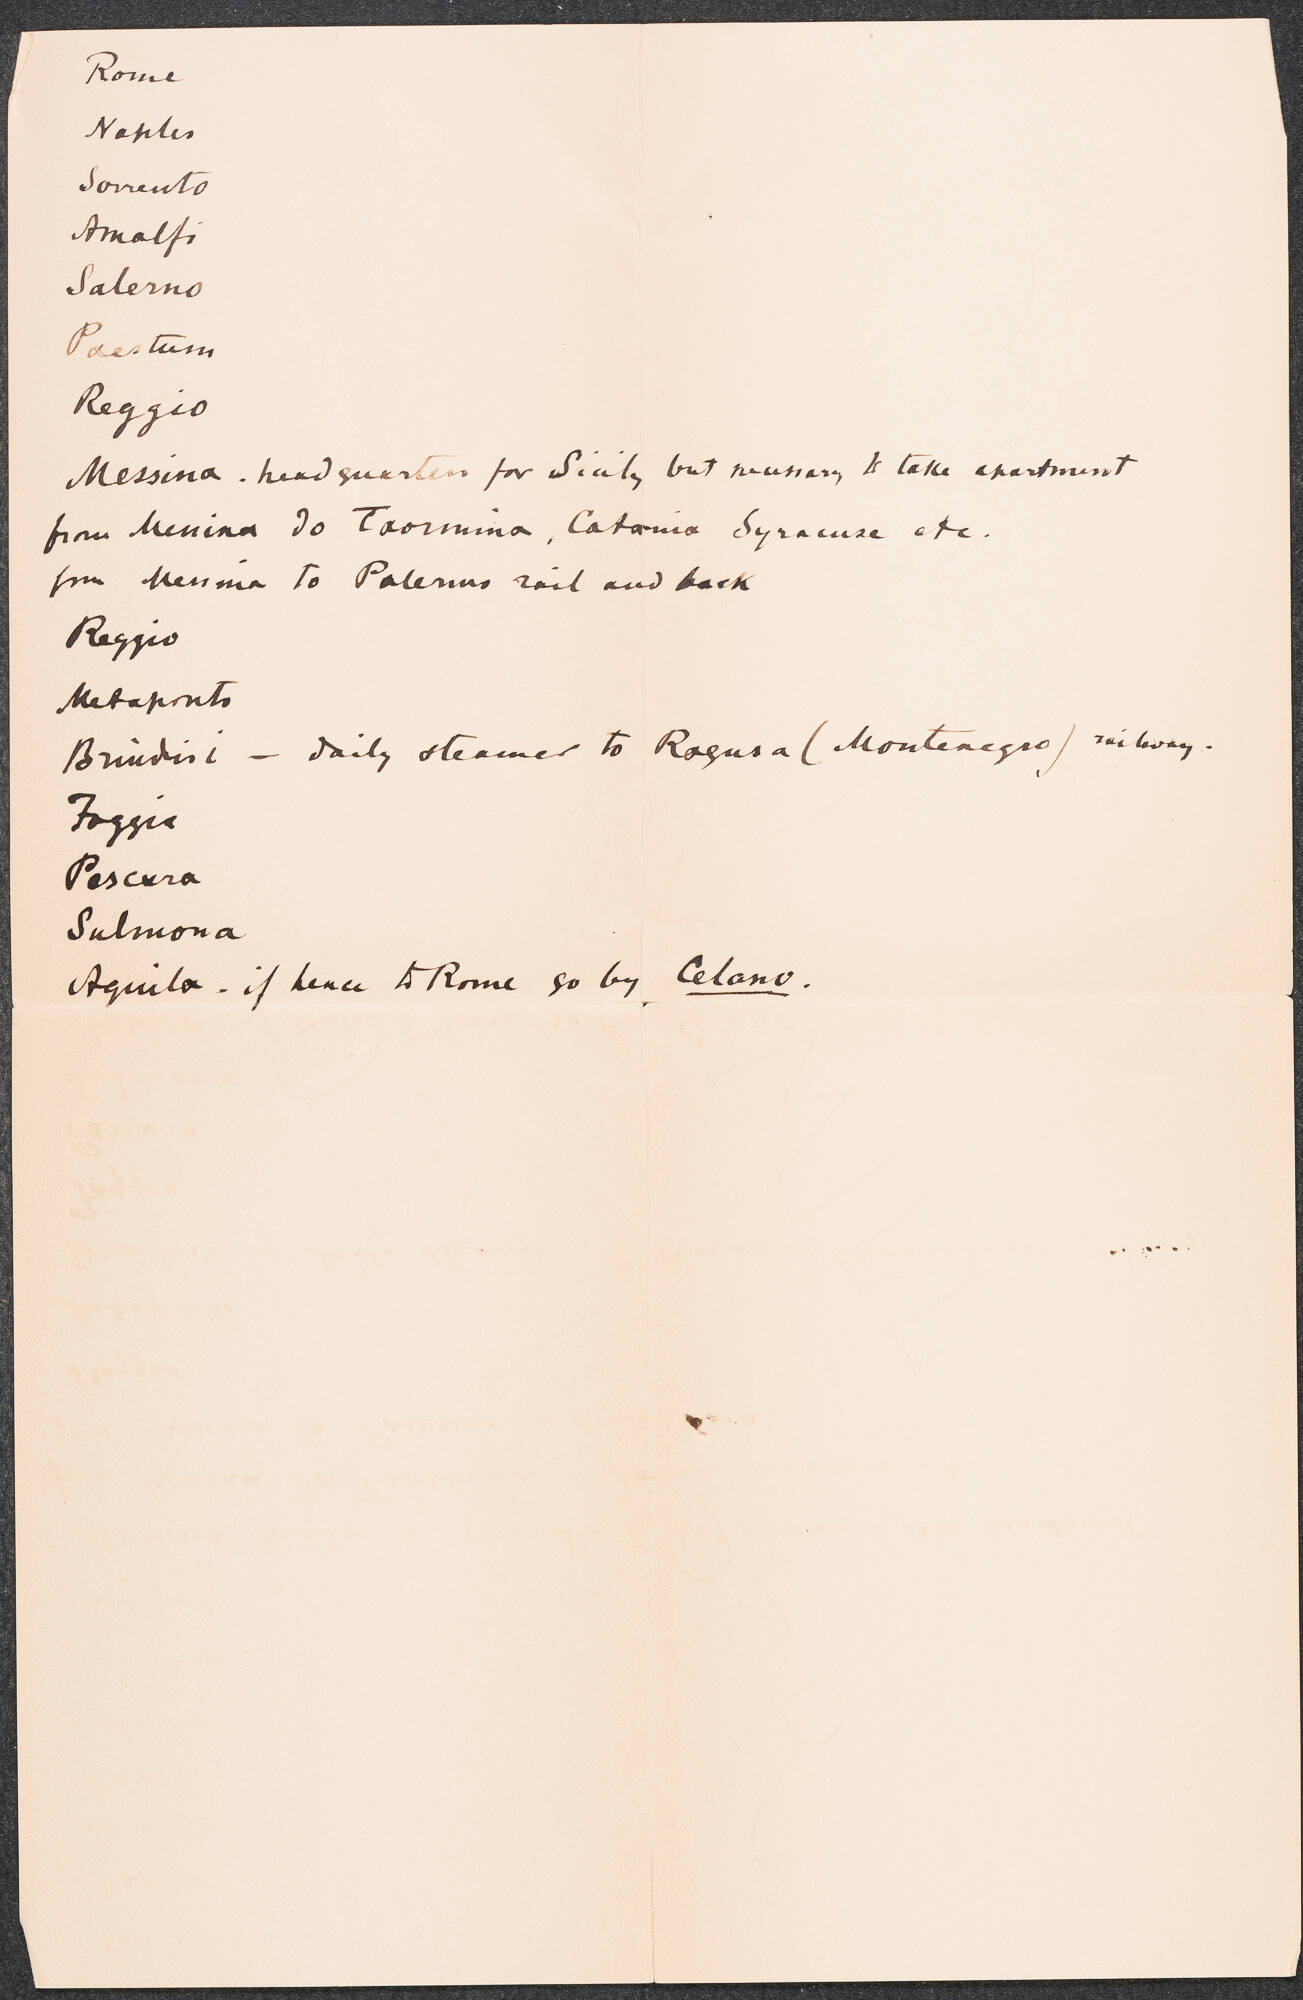 Rome
Naples
Sorrento
Amalfi
Salerno
Paestum
Reggio
Messina - headquarters for Sicily but necessary to take apartment
from Messina do Taormina, Catania Syracuse etc.
from Messina to Palermo rail and back
Reggio
Metaponto
Brindisi — daily steamer to Ragusa (Montenegro) railway.
Foggia
Pescara
Sulmona
Aquila - if hence to Rome go by Celano.